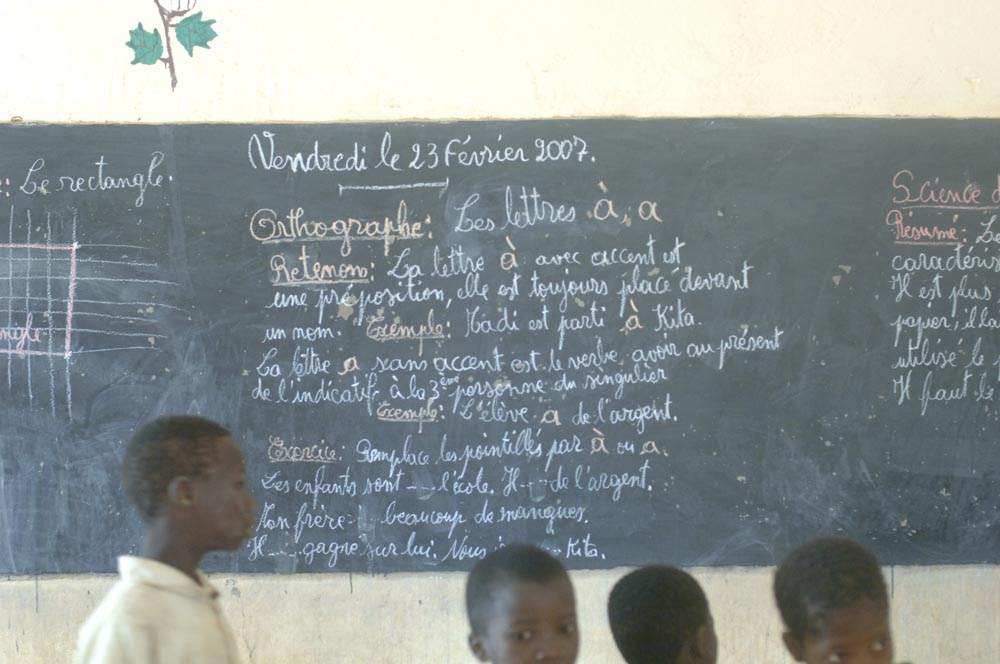 : Le rectangle.
ngle
Vendredi le 23 Février 2007.
Orthographe: Les lettres à, a
Retenons: La lettre à avec accent est
une préposition, elle est toujours placé devant
un nom. Exemple: Hadi est parti à Kita.
La lettre a sans accent est le verbe avoir au présent
de l'indicatif à la 3ème personne du singulier
Exemple: L'élève a de l'argent.
Exercice: Remplace les pointillés par à ou a.
Les enfants sont ... l'école. Il ... de l'argent.
Ton frère beaucoup de mangues.
Il ... gagne sur lui. Nous ... Kita.
Science d
Résumé: Le
caractéris
Il est plus
papier, il
utilisé le
Il faut le